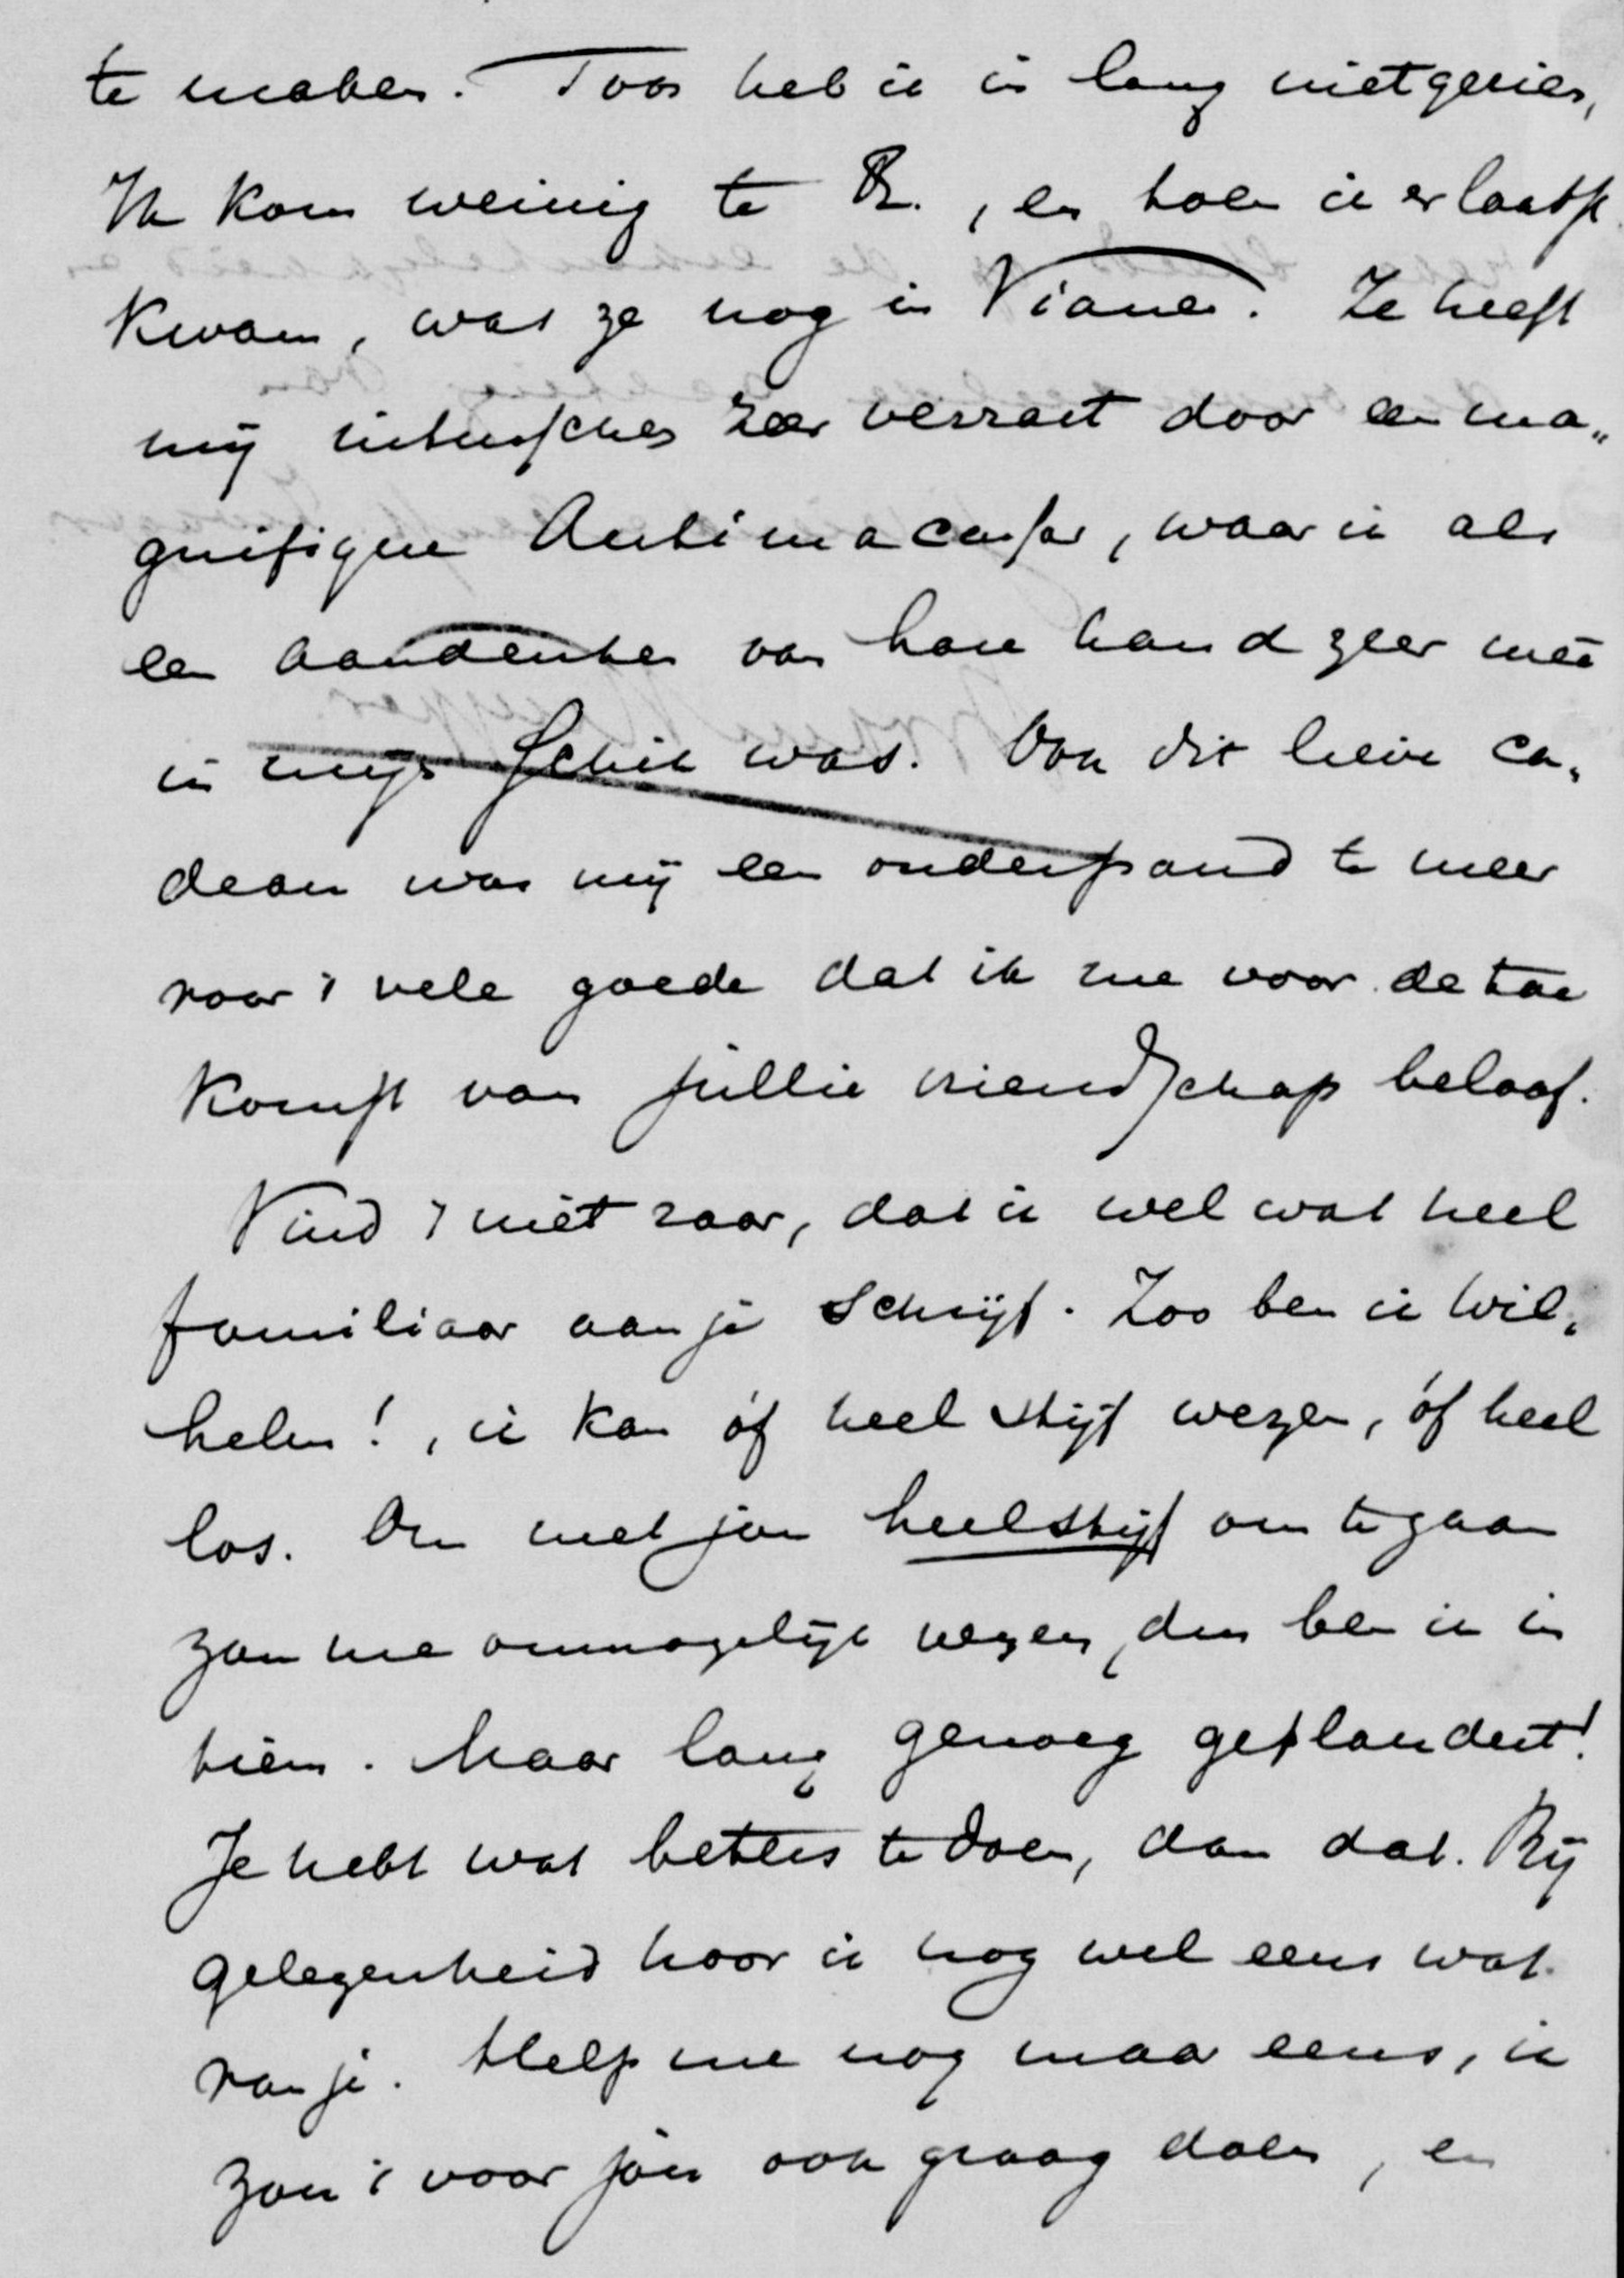 te maken. Toos heb ik in lang niet gezien,
Ik kom weinig te R., en toen ik er laatst
kwam, was ze nog in Vianen. Ze heeft
mij intusschen zeer verrast door een ma„
gnifique Antimacassar, waar ik als
een aandenken van hare hand zeer mee
in mijn schik was. Ook dit lieve ca„
deau was mij een onderpand te meer
voor 't vele goede dat ik me voor de toe
komst van jullie vriendschap beloof.
Vind 't niet raar, dat ik wel wat heel
familiaar aan je schrijf. Zoo ben ik Wil„
helm!, ik kan óf heel stijf wezen, óf heel
los. Om met jou heel stijf om te gaan
zou me onmogelijk wezen, dus ben ik in
. Maar lang genoeg geplaudert!
Je hebt wat beters te doen, dan dat. Bij
gelegenheid hoor ik nog wel eens wat
van je. Help me nog maar eens, ik
zou 't voor jou ook graag doen, en